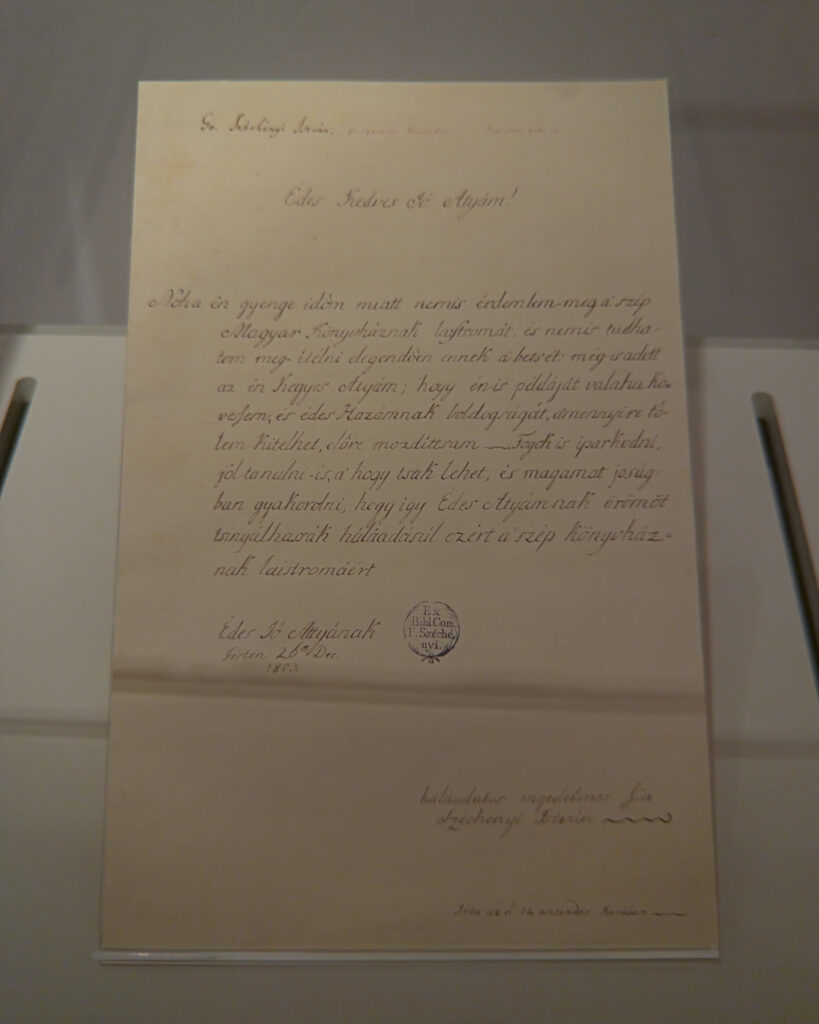 Gr. Széchényi István.
Édes Kedves Jó Atyám!
Nóha én gyenge idôm miatt nemis érdemlem meg a' szép
Magyar Könyvháznak lajstromát, és nemis tudha-
tom meg-itélni elegendôen ennek a' betsét: még-is adott
az én Kegyes Atyám; hogy én-is példáját valaha kö-
vessem, és édes Hazámnak boldogságát, amennyire tô-
lem kitelhet, elôre mozdittsam — Fogok is iparkodni,
jól tanulni-is, a' hogy tsak lehet, és magamat joság-
ban gyakorolni, hogy igy Édes Atyámnak örömöt
tsinyálhassák háláadásúl ezért a' szép könyvház-
nak laistromáért
Édes Jó Attyának
26 Dec.
1803.
Ex
Bibl. Com.
F. Széché-
nyi.
háláadatos engedelmes fia
Széchenyi
12 esztendôs Korában